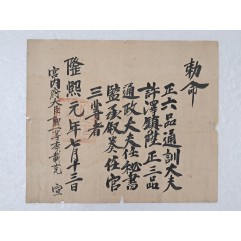 勅命
正六品通訓大夫
許澤鎭陞正三品
通政大夫任秘書
監丞叙奏任官
三等者
隆熙元年七月十三日
宮内府大臣勲一等李載克 宣